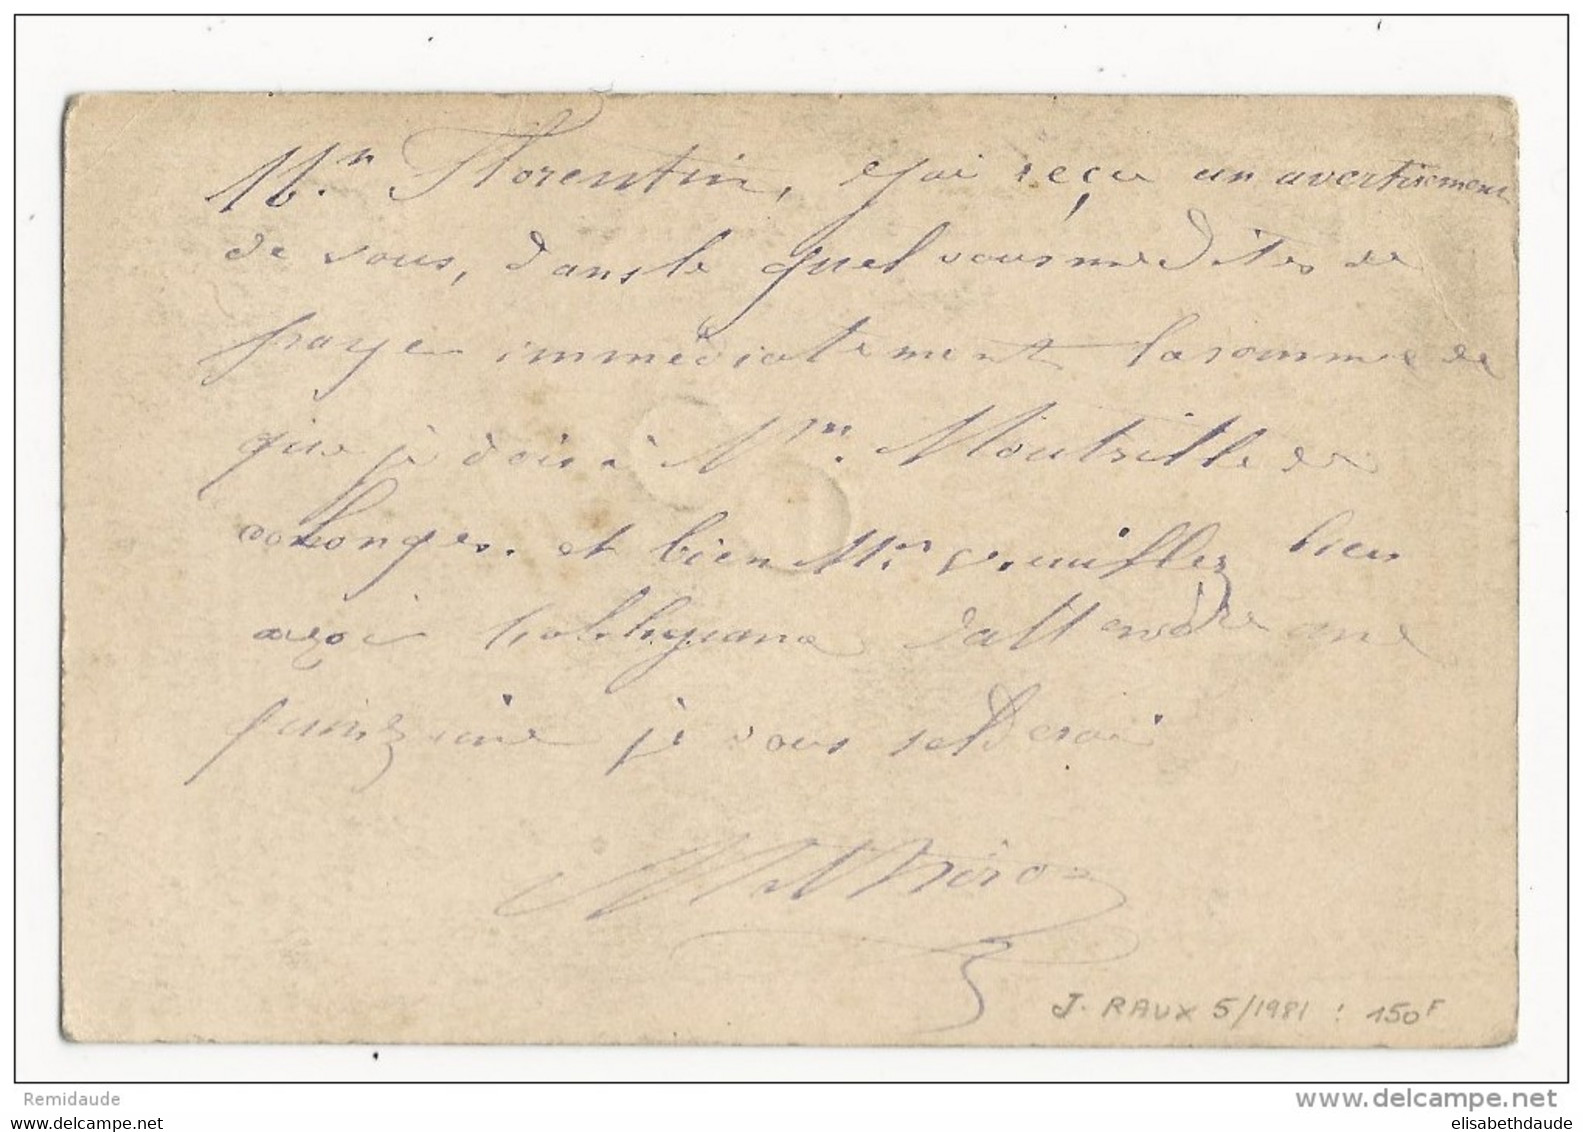 Mr. Florentin, j'ai reçu un avertisement
de vous, dans le quel vous me dites de
paye immédiatement la somme de
que je dois à Mr. Moutrille de
colonges. et bien Mr. veuillez bien
avoir l'obligance d'attendre une
quinzaine je vous solderai
J. RAUX 5/1981 : 150F
Remidaude
www.delcampe.net
elisabethdaude